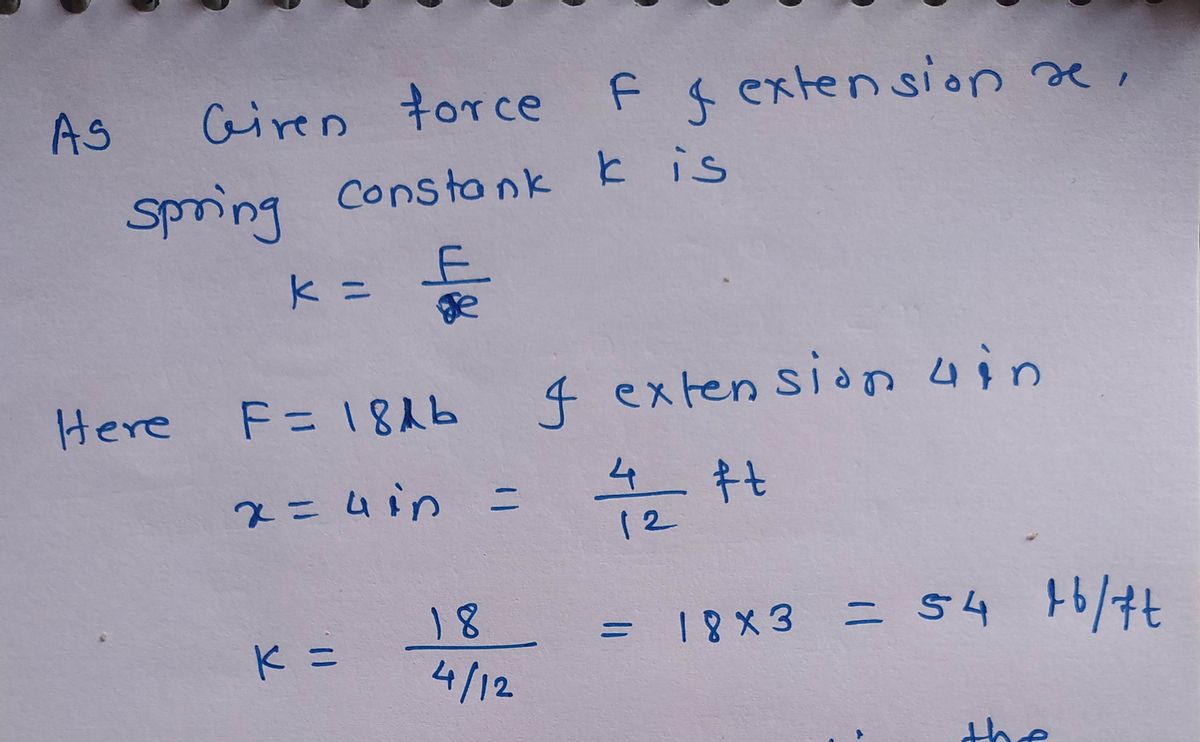 As Given force F & extension x,
spring constank k is
k = F/x
Here F = 18 lb & extension 4in
x = 4in = 4/12 ft
K = 18/(4/12) = 18×3 = 54 lb/ft
the